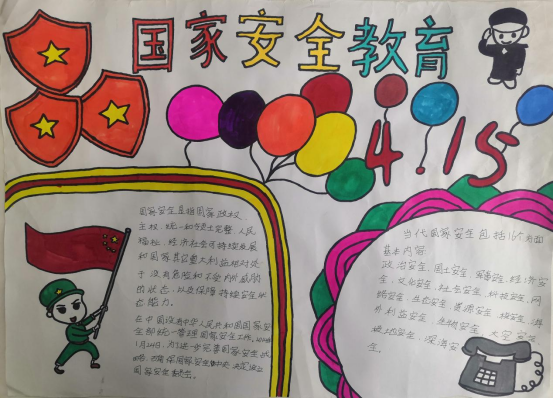 国家安全教育
4.15
国家安全是指国家政权、
主权、统一和领土完整、人民
福祉、经济社会可持续发展
和国家其它重大利益相对处
于没有危险和不受内外威胁
的状态,以及保障持续安全状
态能力。
在中国设有中华人民共和国国家安
全部统一管理国家安全工作,
1月24日,为了进一步完善国家安全
国家安全委员会。
当代国家安全包括16个方面
基本内容:
政治安全、国土安全、军事安全、经济安
全、文化安全、社会安全、科技安全、网
络安全、生态安全、资源安全、核安全、海
外利益安全、生物安全、太空安全
极地安全、深海安
全。